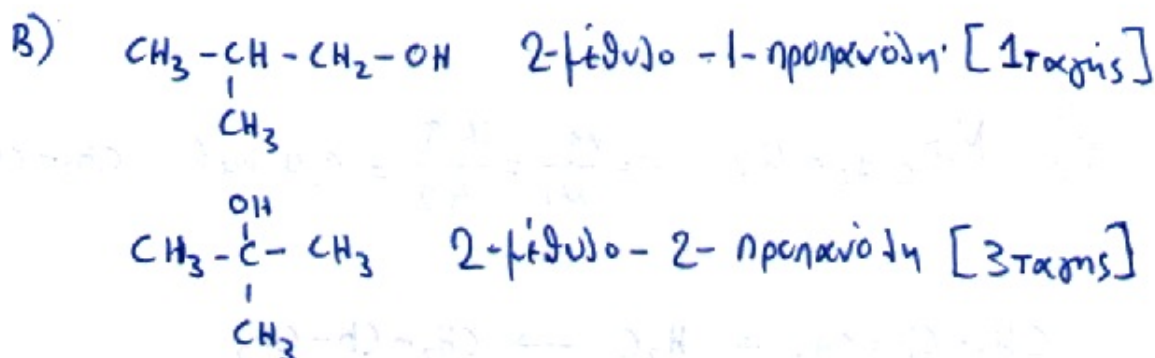 B) CH3 - CH - CH2 - OH 2-μέθυλο - 1- προπανόλη [1ταγής]
CH3
OH
CH3 - C - CH3 2-μέθυλο - 2- προπανόλη [3ταγής]
CH3